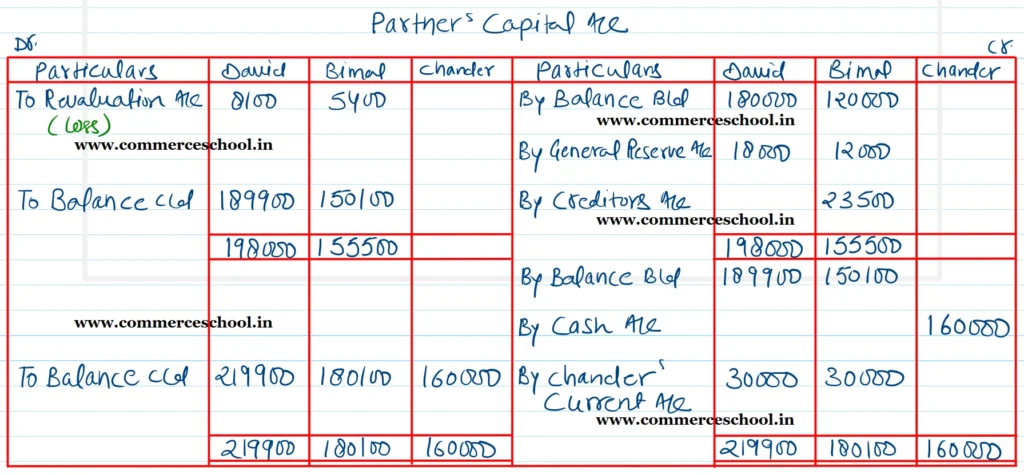 Partner's Capital A/c
Dr. Cr.
Particulars David Bimal Chander Particulars David Bimal Chander
To Revaluation A/c 8100 5400 By Balance B/d 180000 120000
(Loss) www.commerceschool.in
www.commerceschool.in
By General Reserve A/c 18000 12000
To Balance C/d 189900 150100 By Creditors A/c 23500
www.commerceschool.in
198000 155500 198000 155500
By Balance B/d 189900 150100
www.commerceschool.in By Cash A/c 160000
To Balance C/d 219900 180100 160000 By Chander's 30000 30000
Current A/c
www.commerceschool.in
219900 180100 160000 219900 180100 160000